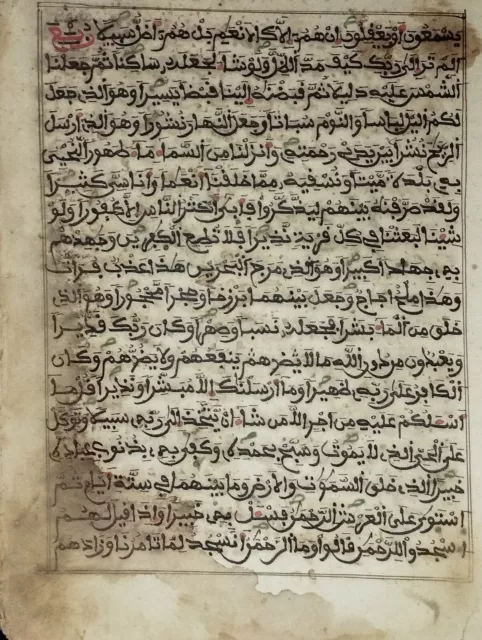 يسمعون أو يعقلون إن هم إلا كالانعم بل هم أضل سبيلا ربع
ألم تر إلى ربك كيف مد الظل ولو شا لجعله ساكنا ثم جعلنا
الشمس عليه دليلا ثم قبضنه إلينا قبضا يسيرا وهو الذي جعل
لكم اليل لباسا والنوم سباتا وجعل النهار نشورا وهو الذي أرسل
الريح نشرا بين يدي رحمته وأنزلنا من السماء ماء طهورا لنحيي
به بلدة ميتا ونسقيه مما خلقنا أنعما وأناسي كثيرا
ولقد صرفنه بينهم ليذكروا فأبى أكثر الناس إلا كفورا ولو
شينا لبعثنا في كل قرية نذيرا فلا تطع الكفرين وجهدهم
به جهادا كبيرا وهو الذي مرج البحرين هذا عذب فرات
وهذا ملح أجاج وجعل بينهما برزخا وحجرا محجورا وهو الذي
خلق من الماء بشرا فجعله نسبا وصهرا وكان ربك قديرا
ويعبدون من دون الله ما لا يضرهم ينفعهم ولا يضرهم وكان
الكافر على ربه ظهيرا وما أرسلنك إلا مبشرا ونذيرا قل ما
أسلكم عليه من أجر إلا من شاء أن يتخذ إلى ربه سبيلا وتوكل
على الحي الذي لا يموت وسبح بحمده وكفى به بذنوب عباده
خبيرا الذي خلق السموت والأرض وما بينهما في ستة أيام ثم
استوى على العرش الرحمن فسل به خبيرا وإذا قيل لهم
اسجدوا للرحمن قالوا وما الرحمن أنسجد لما تامرنا وزادهم